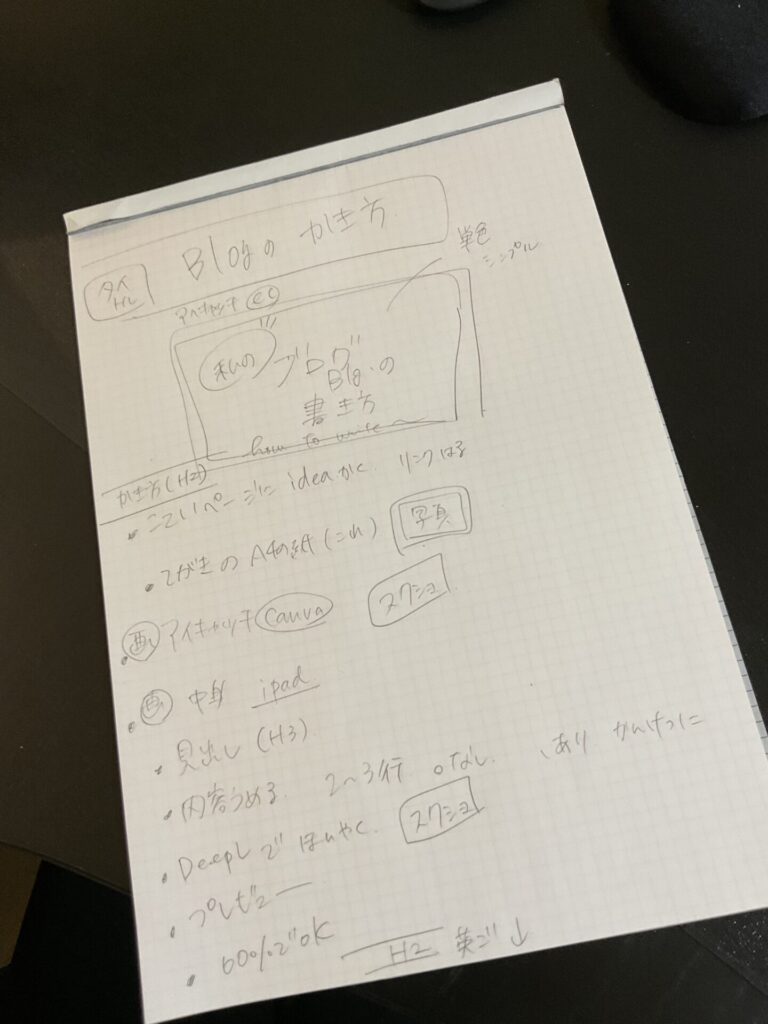 Blogの かき方
タイトル
単色
シンプル
アイキャッチ
私の
ブログ
Blogの
書き方
how to write
かき方(H2)
・こていページに ideaかく リンクはる
・てがきのA4の紙(これ) 写真
・画 アイキャッチ Canva スクショ
・画 中身 ipad
・見出し(H3)
・内容うめる 2〜3行 。なし 、あり かんけつに
・DeepLで ほんやく スクショ
・プレビュー
・60%でOK
H2 英ご↓